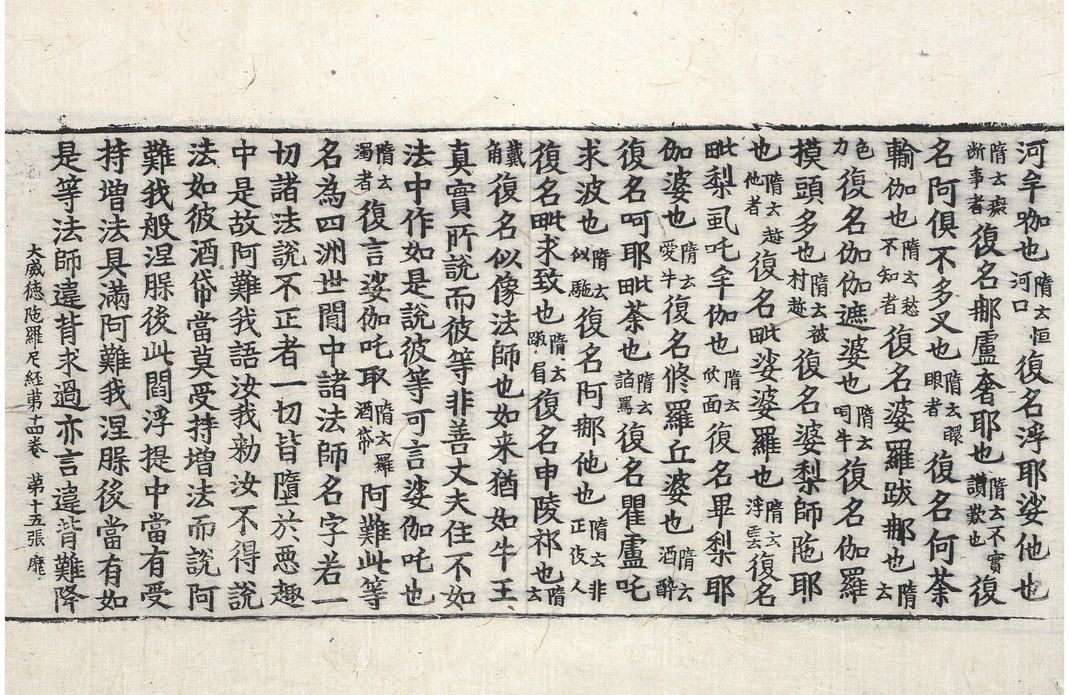 河牟咖也隋云恒河口復名浮耶娑他也
隋云癡断事者復名那盧奢耶也隋云不實讚歎也復
名阿俱不多叉也隋云眼眼者復名何荼
輸伽也隋云愁不知者復名婆羅跋那也隋云
色力復名伽伽遮婆也隋云呞牛復名伽羅
摸頭多也隋云被村趂復名婆梨師陁耶
也隋云趂他者復名毗娑婆羅也隋云浮雲復名
毗梨虱吒牟伽也隋云面復名畢梨耶
伽婆也隋云愛牛復名修羅丘婆也隋云酒醉
復名呵耶毗荼也隋云罵復名瞿盧吒
求波也隋云似驢復名阿那他也隋云非正伎人
復名毗求致也隋云眉復名申陵祁也隋云
戴角復名似像法師也如来猶如牛王
真實所說而彼等非善丈夫住不如
法中作如是說彼等可言婆伽吒也
隋云羅濁者復言婆伽吒取隋云酒帒阿難此等
名為四洲世間中諸法師名字若一
切諸法說不正者一切皆墮於惡趣
中是故阿難我語汝我勑汝不得說
法如彼酒帒當莫受持增法而說阿
難我般涅槃後此閻浮提中當有受
持增法具滿阿難我涅槃後當有如
是等法師違背求過亦言違背難降
大威德陁羅尼經第十四卷 第十五張 靡